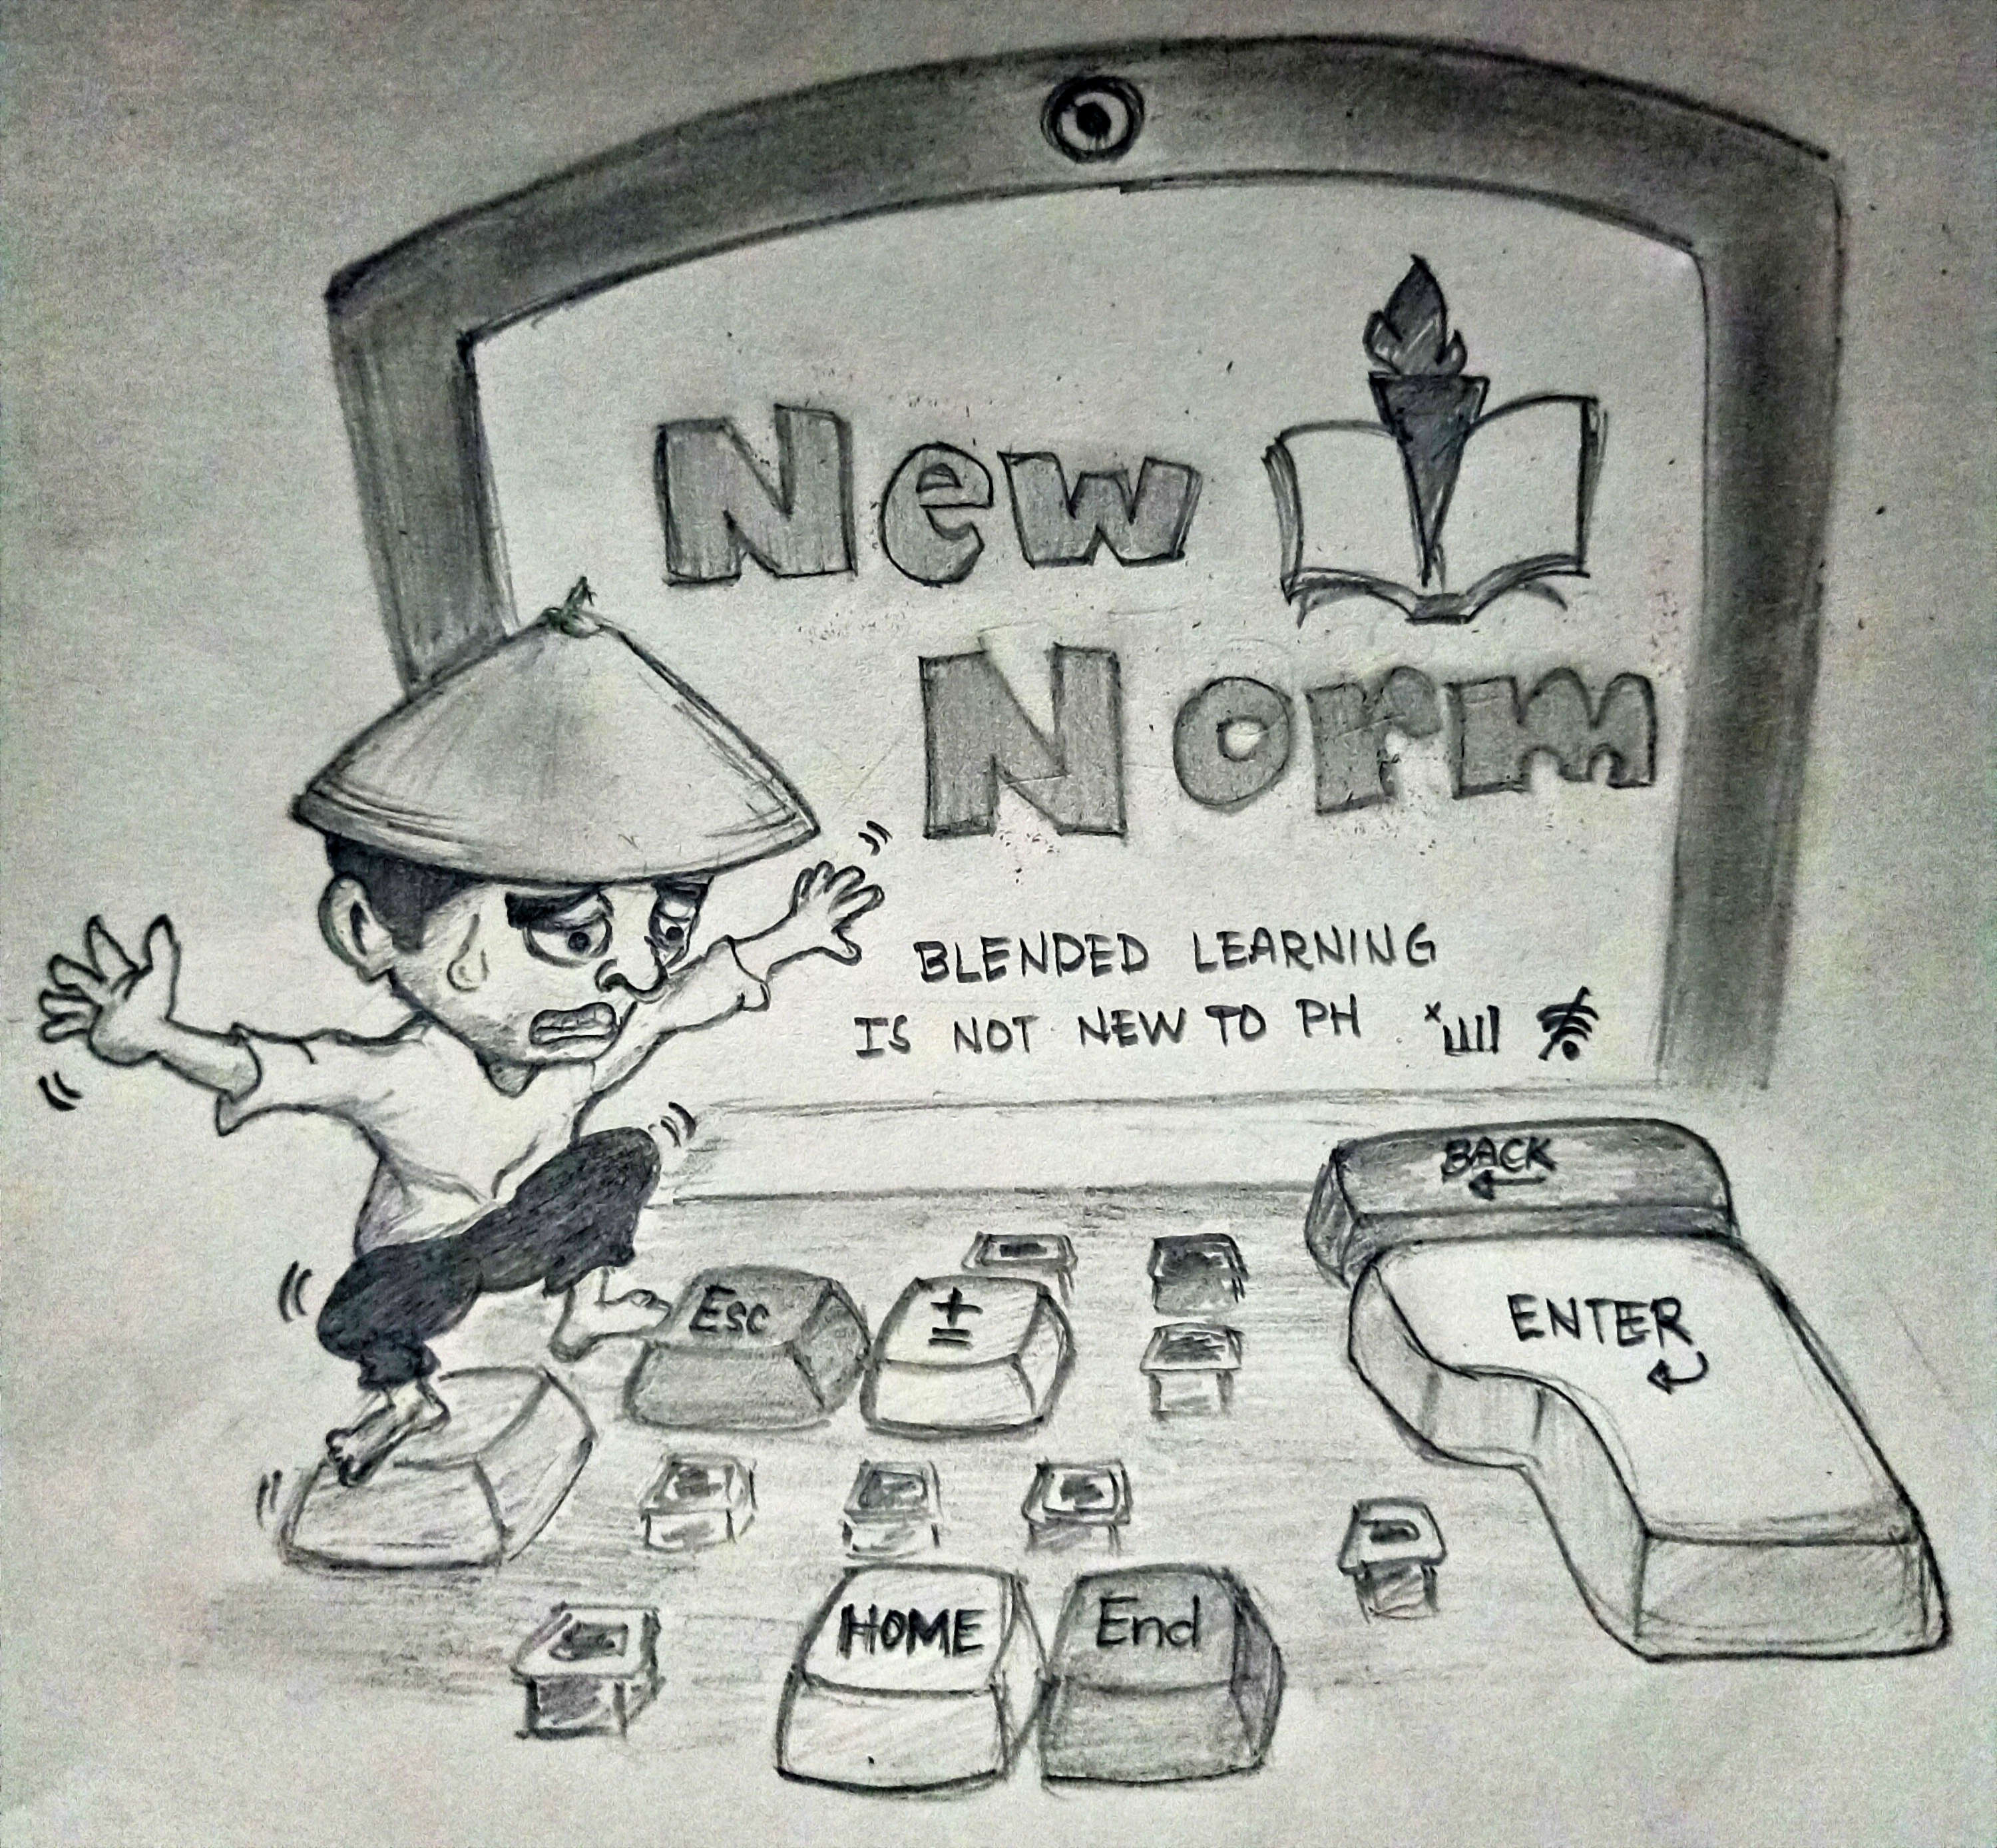 New
Norm
BLENDED LEARNING
IS NOT NEW TO PH
BACK
Esc
±
ENTER
HOME
End